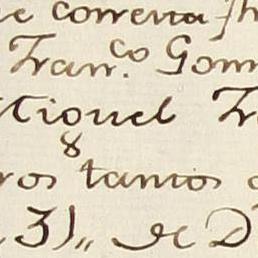 e correrta
Fran.co Gom
Miguel Fr
8
ros tantos
3),, de D